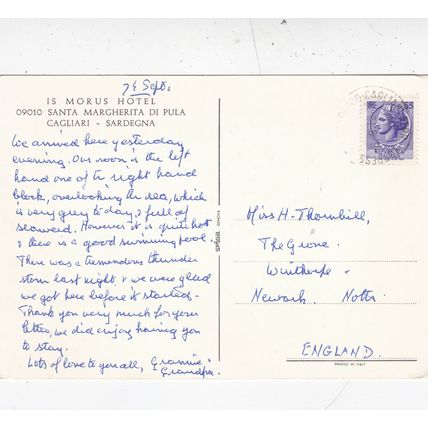 7th Sept.
IS MORUS HOTEL
09010 SANTA MARGHERITA DI PULA
CAGLIARI - SARDEGNA
We arrived here yesterday
evening. Our room is the left
hand one of the right hand
block, overlooking the sea, which
is very grey today, & full of
seaweed. However it is quite hot
& there is a good swimming pool.
There was a tremendous thunder
storm last night & we were glad
we got here before it started -
Thank you very much for your
letter, we did enjoy having you
to stay.
Lots of love to you all, Grannie &
Grandpa.
PRINTED IN ITALY
Miss H. Thornhill,
The Grove,
Winthorpe
Newark. Notts.
ENGLAND.